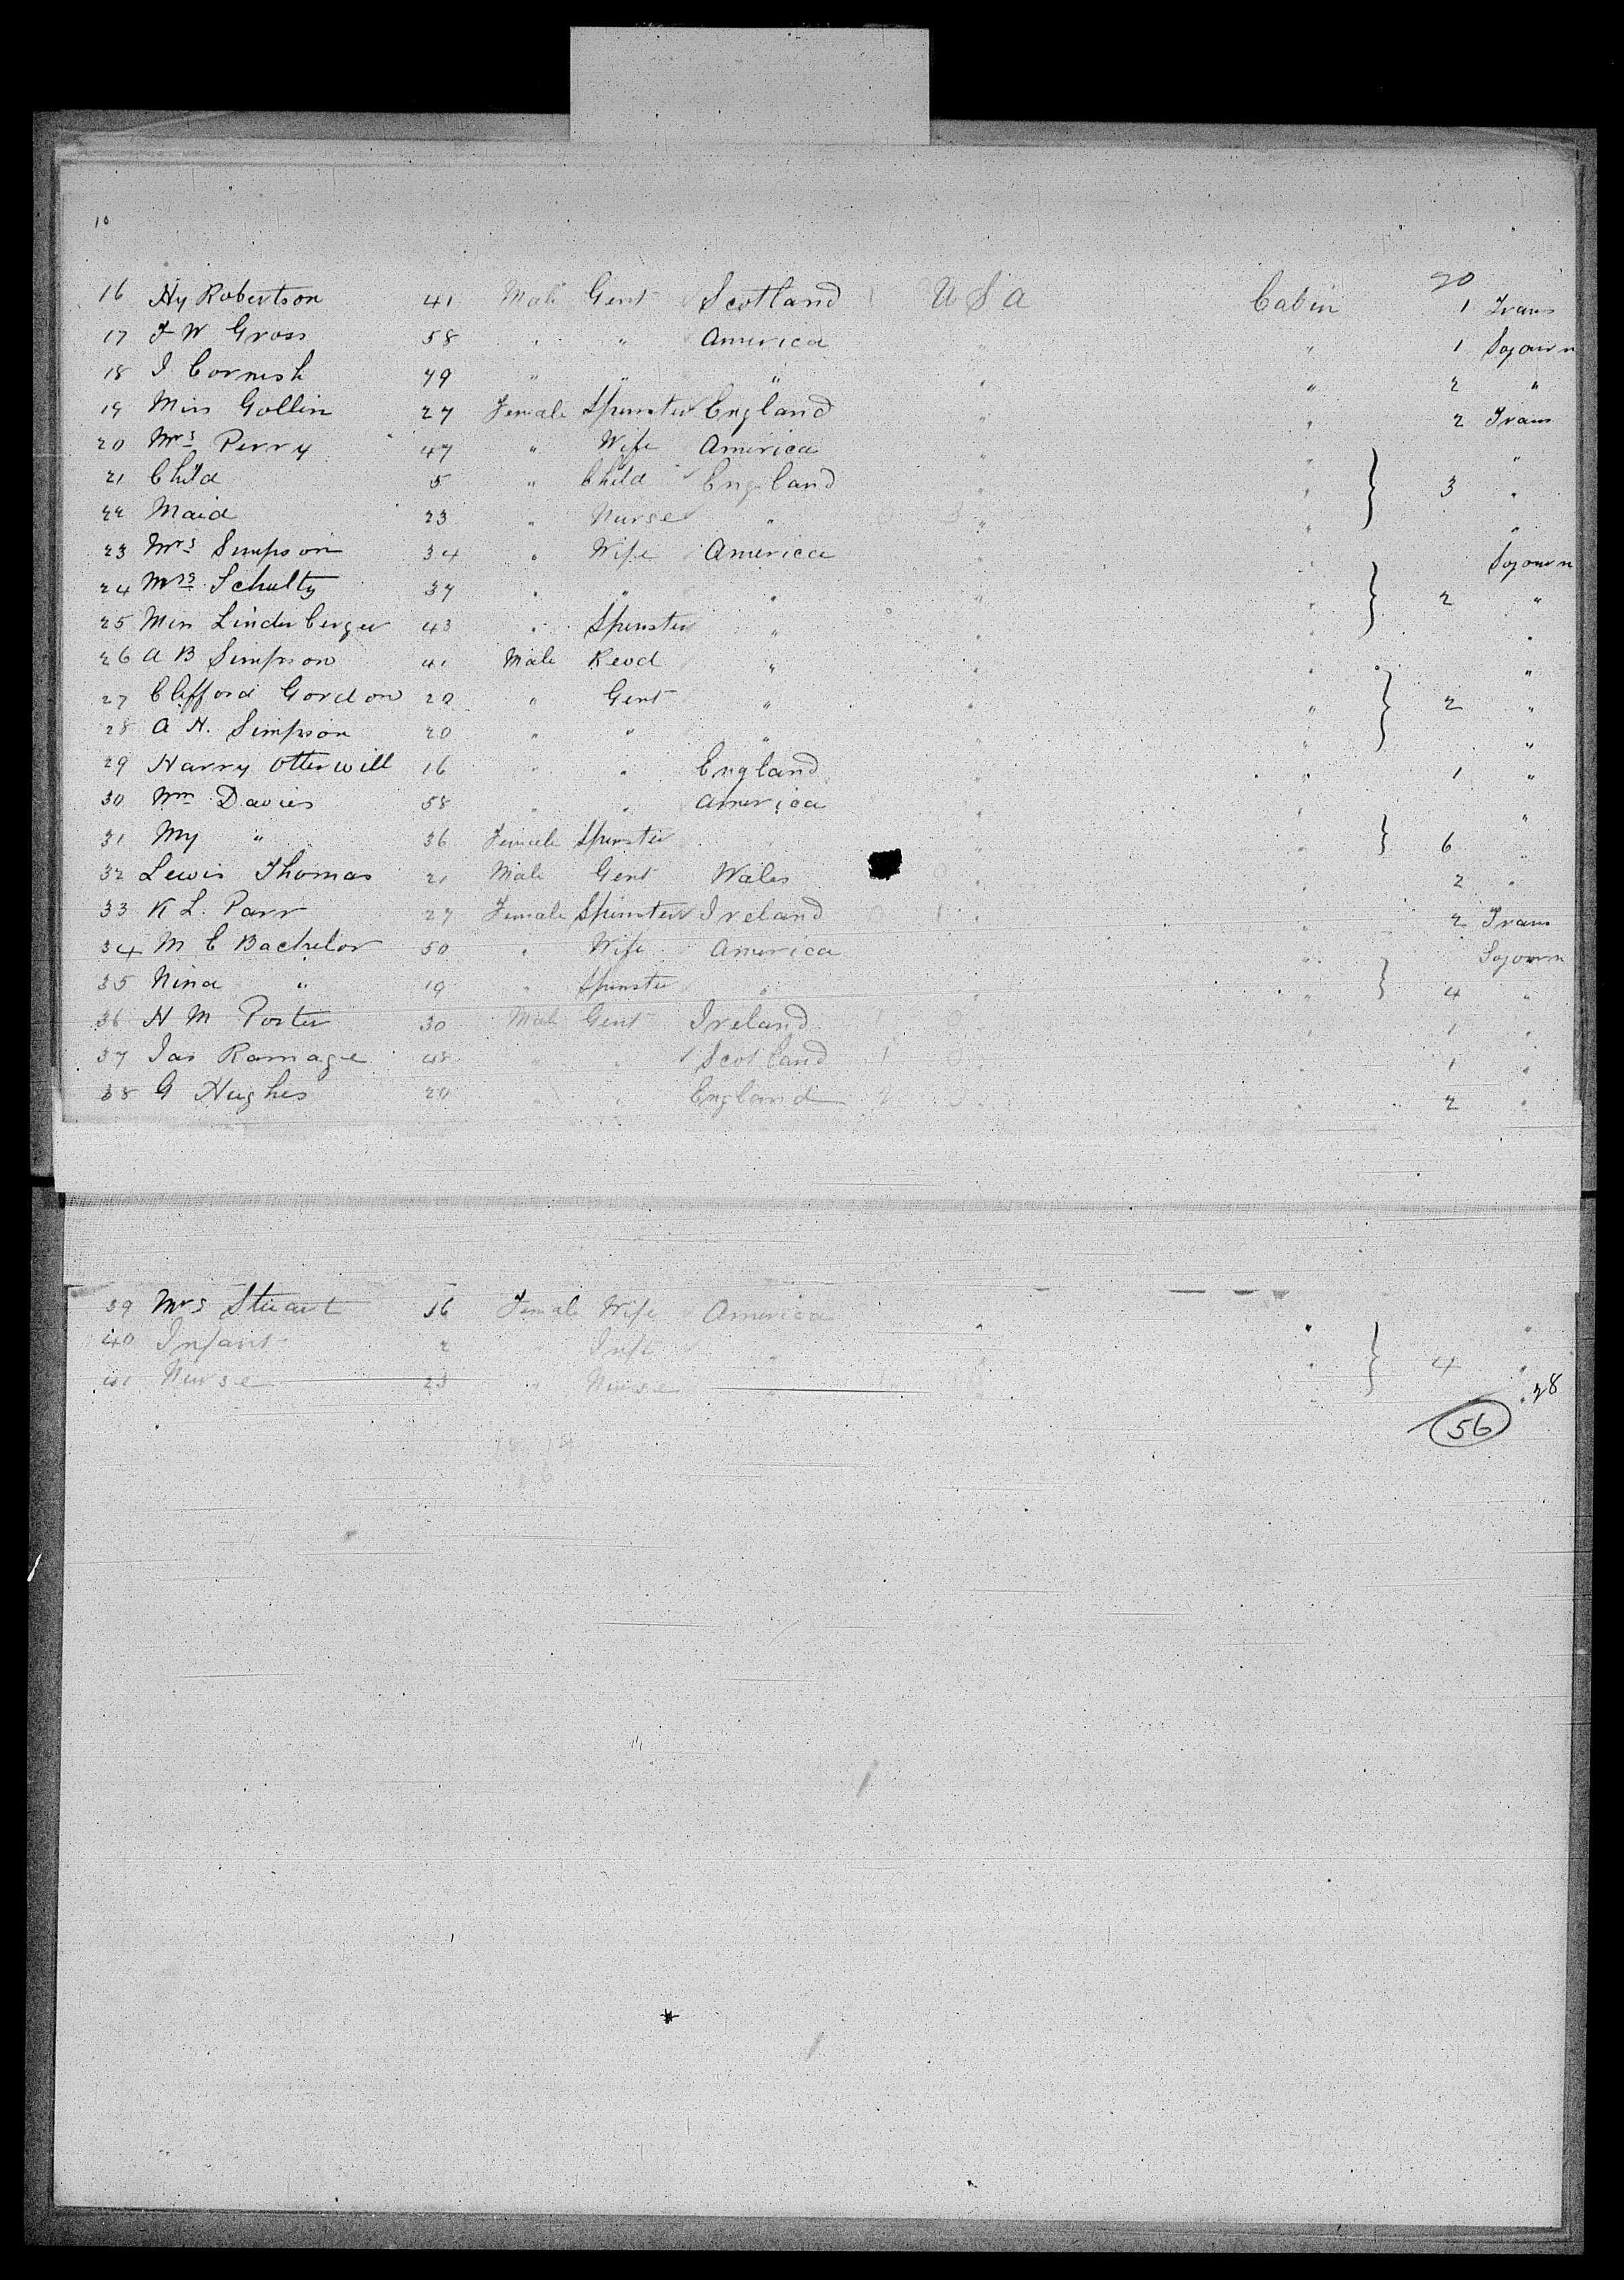 10
20
16 Hy Robertson 41 Male Gent Scotland U S A Cabin 1 Trans
17 F W Gross 58 " " America " " 1 Sojourn
18 I Cornish 49 " " " " " 2 "
19 Miss Gollin 27 Female Spinster England " " 2 Trans
20 Mrs Perry 47 " Wife America " " "
21 Child 5 " Child England " " } 3 "
22 Maid 23 " Nurse " " " "
23 Mrs Simpson 34 " Wife America " " Sojourn
24 Mrs Schultz 37 " " " " " } 2 "
25 Miss Linderberger 43 " Spinster " " " "
26 A B Simpson 41 Male Revd " " " "
27 Clifford Gordon 20 " Gent " " " } 2 "
28 A H. Simpson 20 " " " " " "
29 Harry Otterwill 16 " " England " " 1 "
30 Wm Davies 58 " " America " " "
31 My " 36 Female Spinster " " " } 6 "
32 Lewis Thomas 21 Male Gent Wales " " 2 "
33 K L. Parr 27 Female Spinster Ireland " " 2 Trans
34 M E Bachelor 50 " Wife America " Sojourn
35 Nina " 19 " Spinster " " " } 4 "
36 H M Porter 30 Male Gent Ireland " " 1 "
37 Jas Ramage 48 " " Scotland " " 1 "
38 G Hughes 20 " " England " " 2 "
39 Mrs Stuart 36 Female Wife America " " "
40 Infant 2 " Inft " " " } 4 "
41 Nurse 23 " Nurse " " " "
28
56